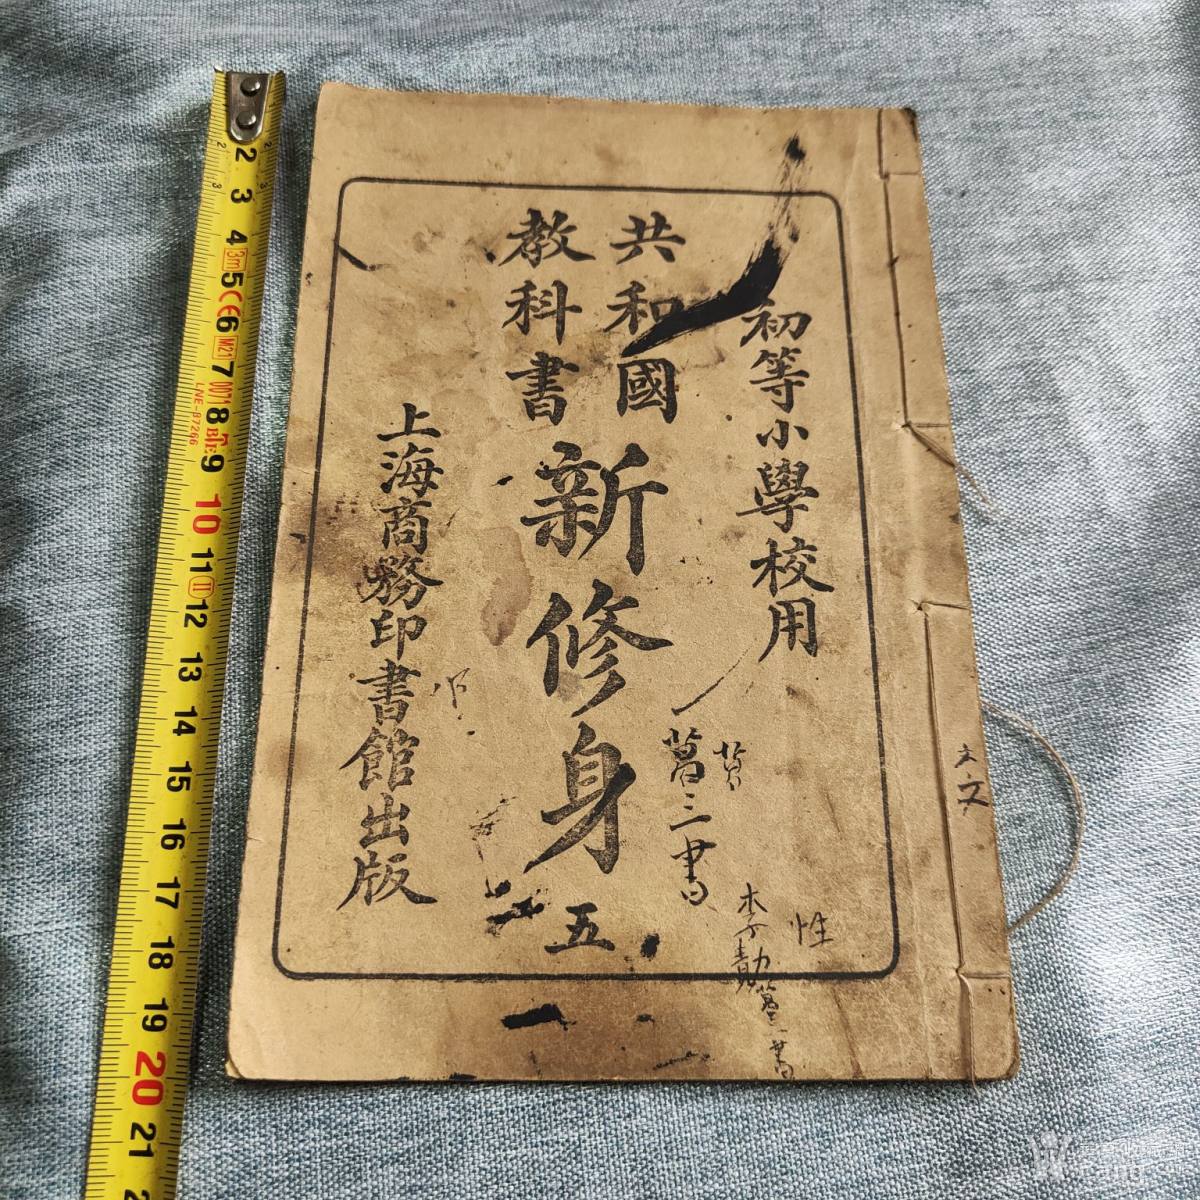 初等小學校用
共和國
教科書
新修身
五
上海商務印書館出版
三書
性
文
2
3
4
3m
5
CE
6
M21
7
0071
8
9
10
11
II
12
13
14
15
16
17
18
19
20
21